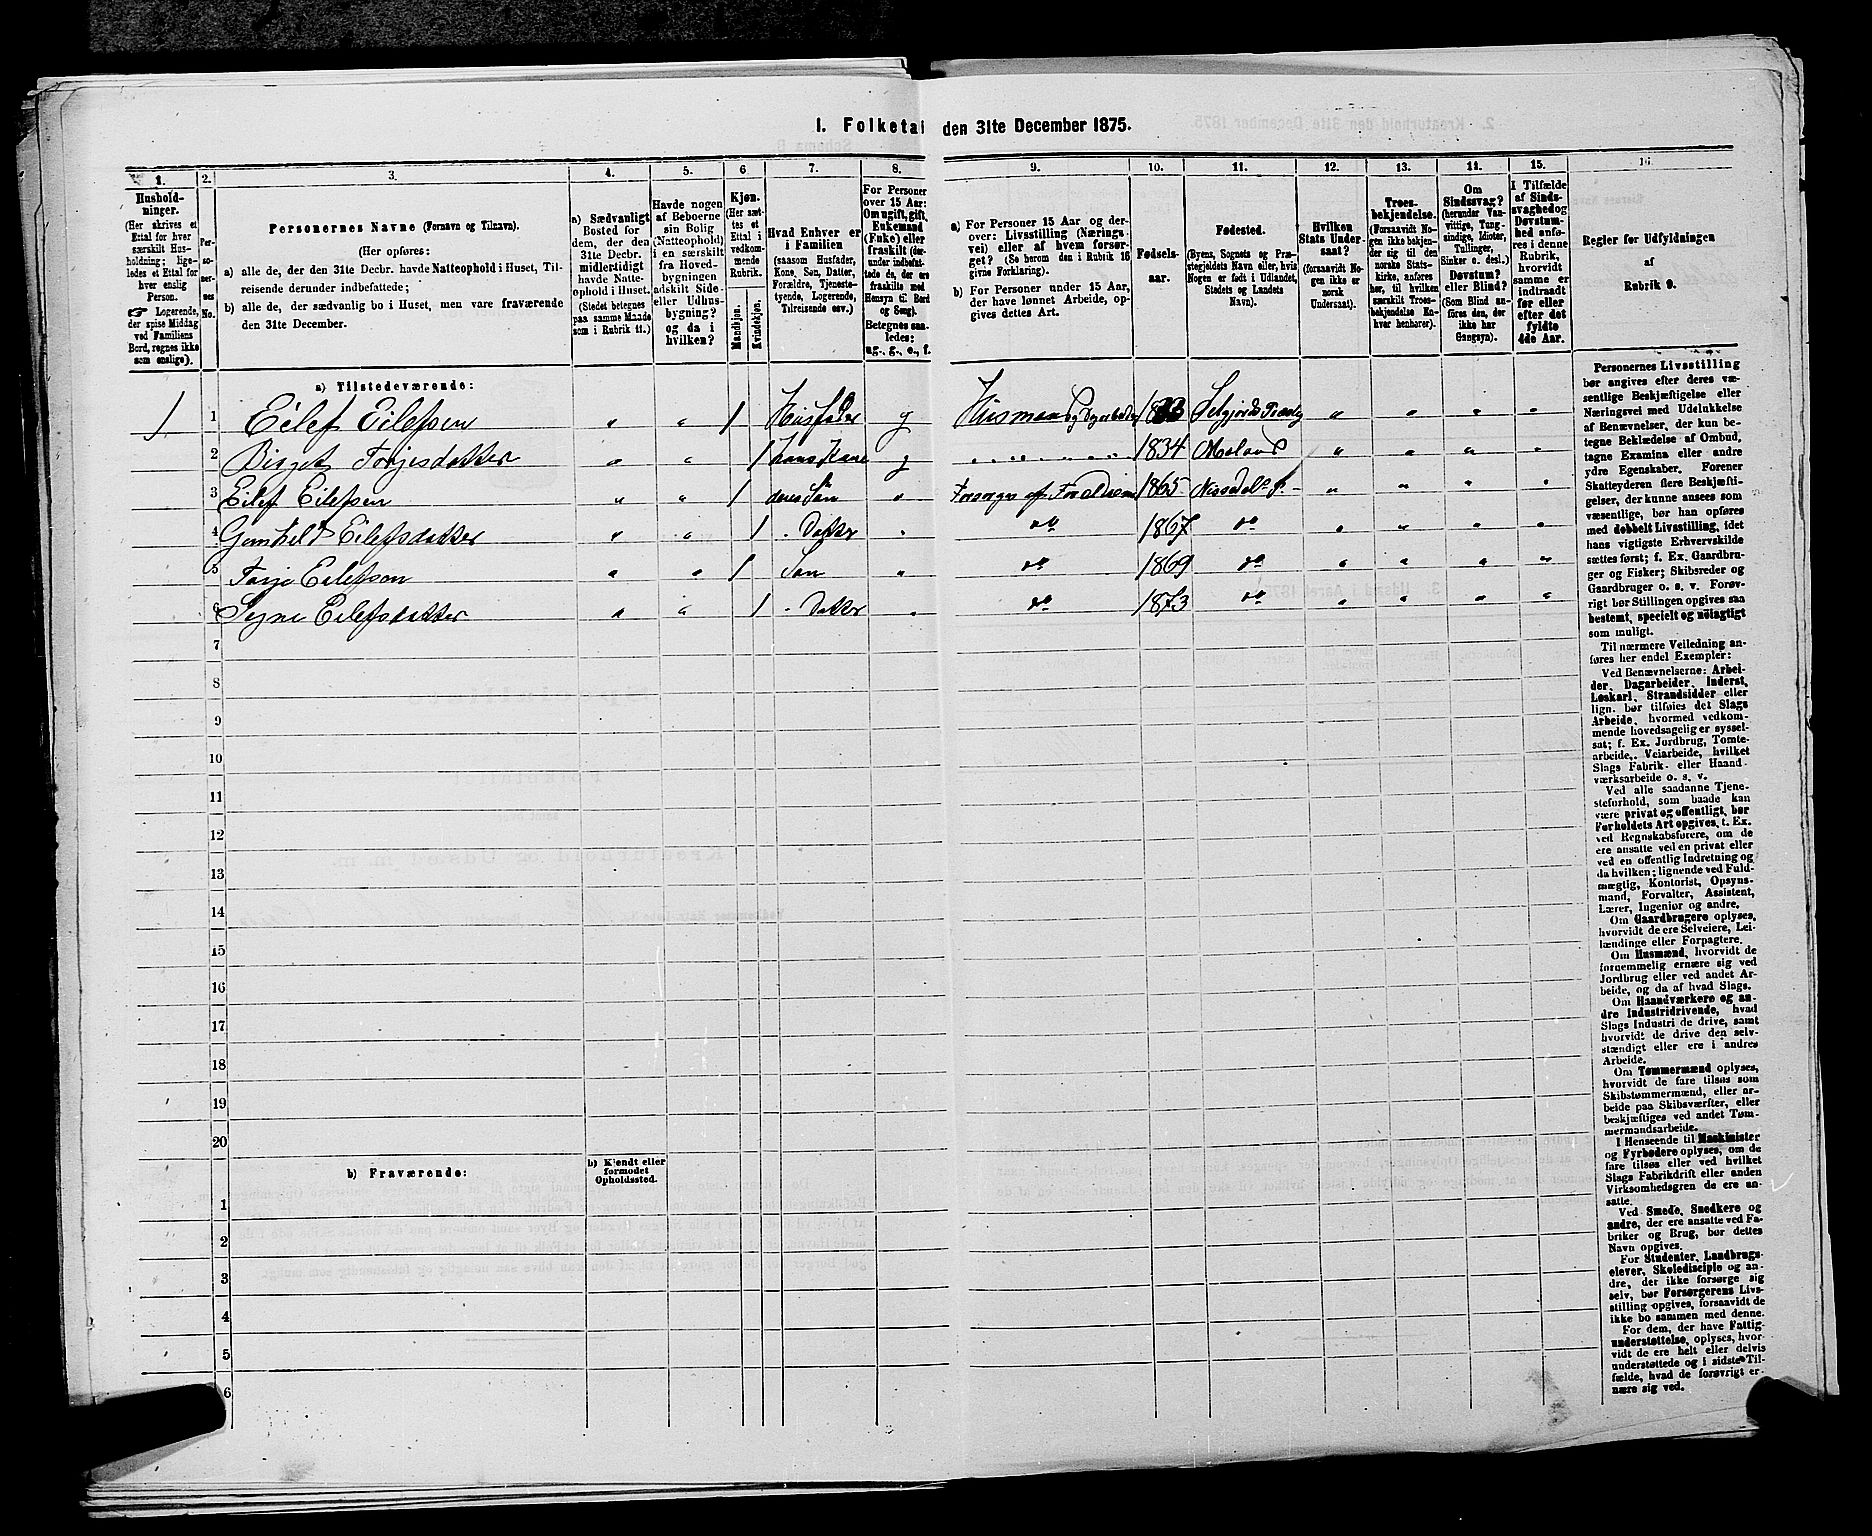 1. Folketal den 31te December 1875.
1. 2. 3. 4. 5. 6 7. 8. 9. 10. 11. 12. 13. 14. 15. 16
Husholdninger.
(Her skrives et
Ettal for hver
særskilt Husholdning;
ligeledes et Ettal for
hver enslig
Person.
☞ Logerende,
der spise Middag
ved Familiens
Bord, regnes ikke
som enslige).
Personernes No.
Personernes Navne (Fornavn og Tilnavn).
(Her opføres:
a) alle de, der den 31te Decbr. havde Natteophold i Huset, Tilreisende derunder indbefattede;
b) alle de, der sædvanlig bo i Huset, men vare fraværende
den 31te December.
a) Sædvanligt
Bosted for
dem, der den
31te Decbr.
midlertidigt
havde Natteophold i Huset.
(Stedet betegnes
paa samme Maade
som i Rubrik 11.)
Havde nogen
af Beboerne
sin Bolig
(Natteophold)
i en særskilt
fra Hovedbygningen
adskilt Side-
eller Udhusbygning?
og da i
hvilken?
Kjøn.
(Her sættes et
Ettal i
vedkommende
Rubrik.
Mandkjøn.
Kvindekjøn.
Hvad Enhver er
i Familien
(saasom Husfader,
Kone, Søn, Datter,
Forældre, Tjenestetyende, Logerende,
Tilreisende osv.)
For Personer
over 15 Aar:
Om ugift, gift,
Enkemand
(Enke) eller
fraskilt (derunder indbefattede de, der ere
fraskilte med
Hensyn til Bord
og Seng).
Betegnes saaledes:
ug., g., e., f.
a) For Personer 15 Aar og derover: Livsstilling (Næringsvei) eller af hvem forsørget? (Se herom den i Rubrik 16
givne Forklaring).
b) For Personer under 15 Aar,
der have lønnet Arbeide, opgives dettes Art.
Fødselsaar.
Fødested.
(Byens, Sognets og Præstegjeldets Navn eller, hvis
Nogen er født i Udlandet,
Stedets og Landets
Navn).
Hvilken
Stats Undersaat?
(forsaavidt Nogen ikke er
norsk
Undersaat).
Troesbekjendelse.
(Forsaavidt Nogen ikke bekjender sig til den
norske Statskirke, anføres
her, til hvilken
særskilt Troesbekjendelse Enhver henhører).
Om
Sindssvag?
(herunder Vanvittige, Tungsindige, Idioter,
Tullinger,
Sinker o. desl.)
Døvstum?
eller Blind?
(Som Blind anføres den, der
ikke har
Gangsyn).
I Tilfælde
af Sindssvaghed og
Døvstumhed anføres i denne
Rubrik,
hvorvidt
samme er
indtraadt
før eller
efter det
fyldte
4de Aar.
Regler for Udfyldningen
af
Rubrik 9.
a) Tilstedeværende:
1 1 Eilef Eilefsen " " 1 Husfader g Husmand 18 " " " "
2 Birget Torjesdatter " " 1 hans Kone g " " " " " " 1834 " " " "
3 Eilef Eilefsen " " 1 deres Søn " Forsørges af Forældrene 1865 " " " "
4 Gunhild Eilefsdatter " " 1 " Datter " do 1867 do " " " "
5 Torje Eilefsen " " 1 Søn " do 1869 do " " " "
6 Signe Eilefsdatter " " 1 " Datter " do 1873 do " " " "
7
8
9
10
11
12
13
14
15
16
17
18
19
20
b) Fraværende:
b) Kjendt eller
formodet
Opholdssted.
1
2
3
4
5
6
Personernes Livsstilling
bør angives efter deres væsentlige Beskjæftigelse eller
Næringsvei med Udelukkelse
af Benævnelser, der kun betegne Beklædelse af Ombud,
tagne Examina eller andre
ydre Egenskaber. Forener
Skatteyderen flere Beskjæftigelser, der kunne ansees som
væsentlige, bør han opføres
med dobbelt Livsstilling, idet
hans vigtigste Erhvervskilde
sættes først; f. Ex. Gaardbruger og Fisker; Skibsreder og
Gaardbruger o. s. v. Forøvrigt bør Stillingen opgives saa
bestemt, specielt og nøiagtigt
som muligt.
Til nærmere Veiledning anføres her endel Exempler:
Ved Benævnelserne: Arbeider, Dagarbeider, Inderst,
Løskarl, Strandsidder eller
lign. bør tilføies det Slags
Arbeide, hvormed vedkommende hovedsagelig er sysselsat; f. Ex. Jordbrug, Tomtearbeide, Veiarbeide, hvilket
Slags Fabrik- eller Haandværksarbeide o. s. v.
Ved alle saadanne Tjenesteforhold, som baade kan
være privat og offentligt, bør
Forholdets Art opgives, t. Ex.
ved Regnskabsførere, om de
ere ansatte ved en privat eller
ved en offentlig Indretning og
da hvilken; lignende ved Fuldmægtig, Kontorist, Opsynsmand, Forvalter, Assistent,
Lærer, Ingeniør og andre.
Om Gaardbrugere oplyses,
hvorvidt de ere Selveiere, Leilændinge eller Forpagtere.
Om Husmænd, hvorvidt de
fornemmelig ernære sig ved
Jordbrug eller ved andet Arbeide, og da af hvad Slags.
Om Haandværkere og andre Industridrivende, hvad
Slags Industri de drive, samt
hvorvidt de drive den selvstændigt eller ere i andres
Arbeide.
Om Tømmermænd oplyses,
hvorvidt de fare tilsøs som
Skibstømmermænd, eller arbeide paa Skibsværfter, eller
beskjæftiges ved andet Tømmermandsarbeide.
I Henseende til Maskinister
og Fyrbødere oplyses, om de
fare tilsøs eller ved hvilket
Slags Fabrikdrift eller anden
Virksomhedsgren de ere ansatte.
Ved Smede, Snedkere og
andre, der ere ansatte ved Fabriker og Brug, bør dettes
Navn opgives.
For Studenter, Landbrugselever, Skoledisciple og andre, der ikke forsørge sig
selv, bør Forsørgerens Livsstilling opgives, forsaavidt de
ikke bo sammen med denne.
For dem, der have Fattigunderstøttelse, oplyses, hvorvidt de ere helt eller delvis
understøttede og i sidste Tilfælde, hvad de forøvrigt ernære sig ved.